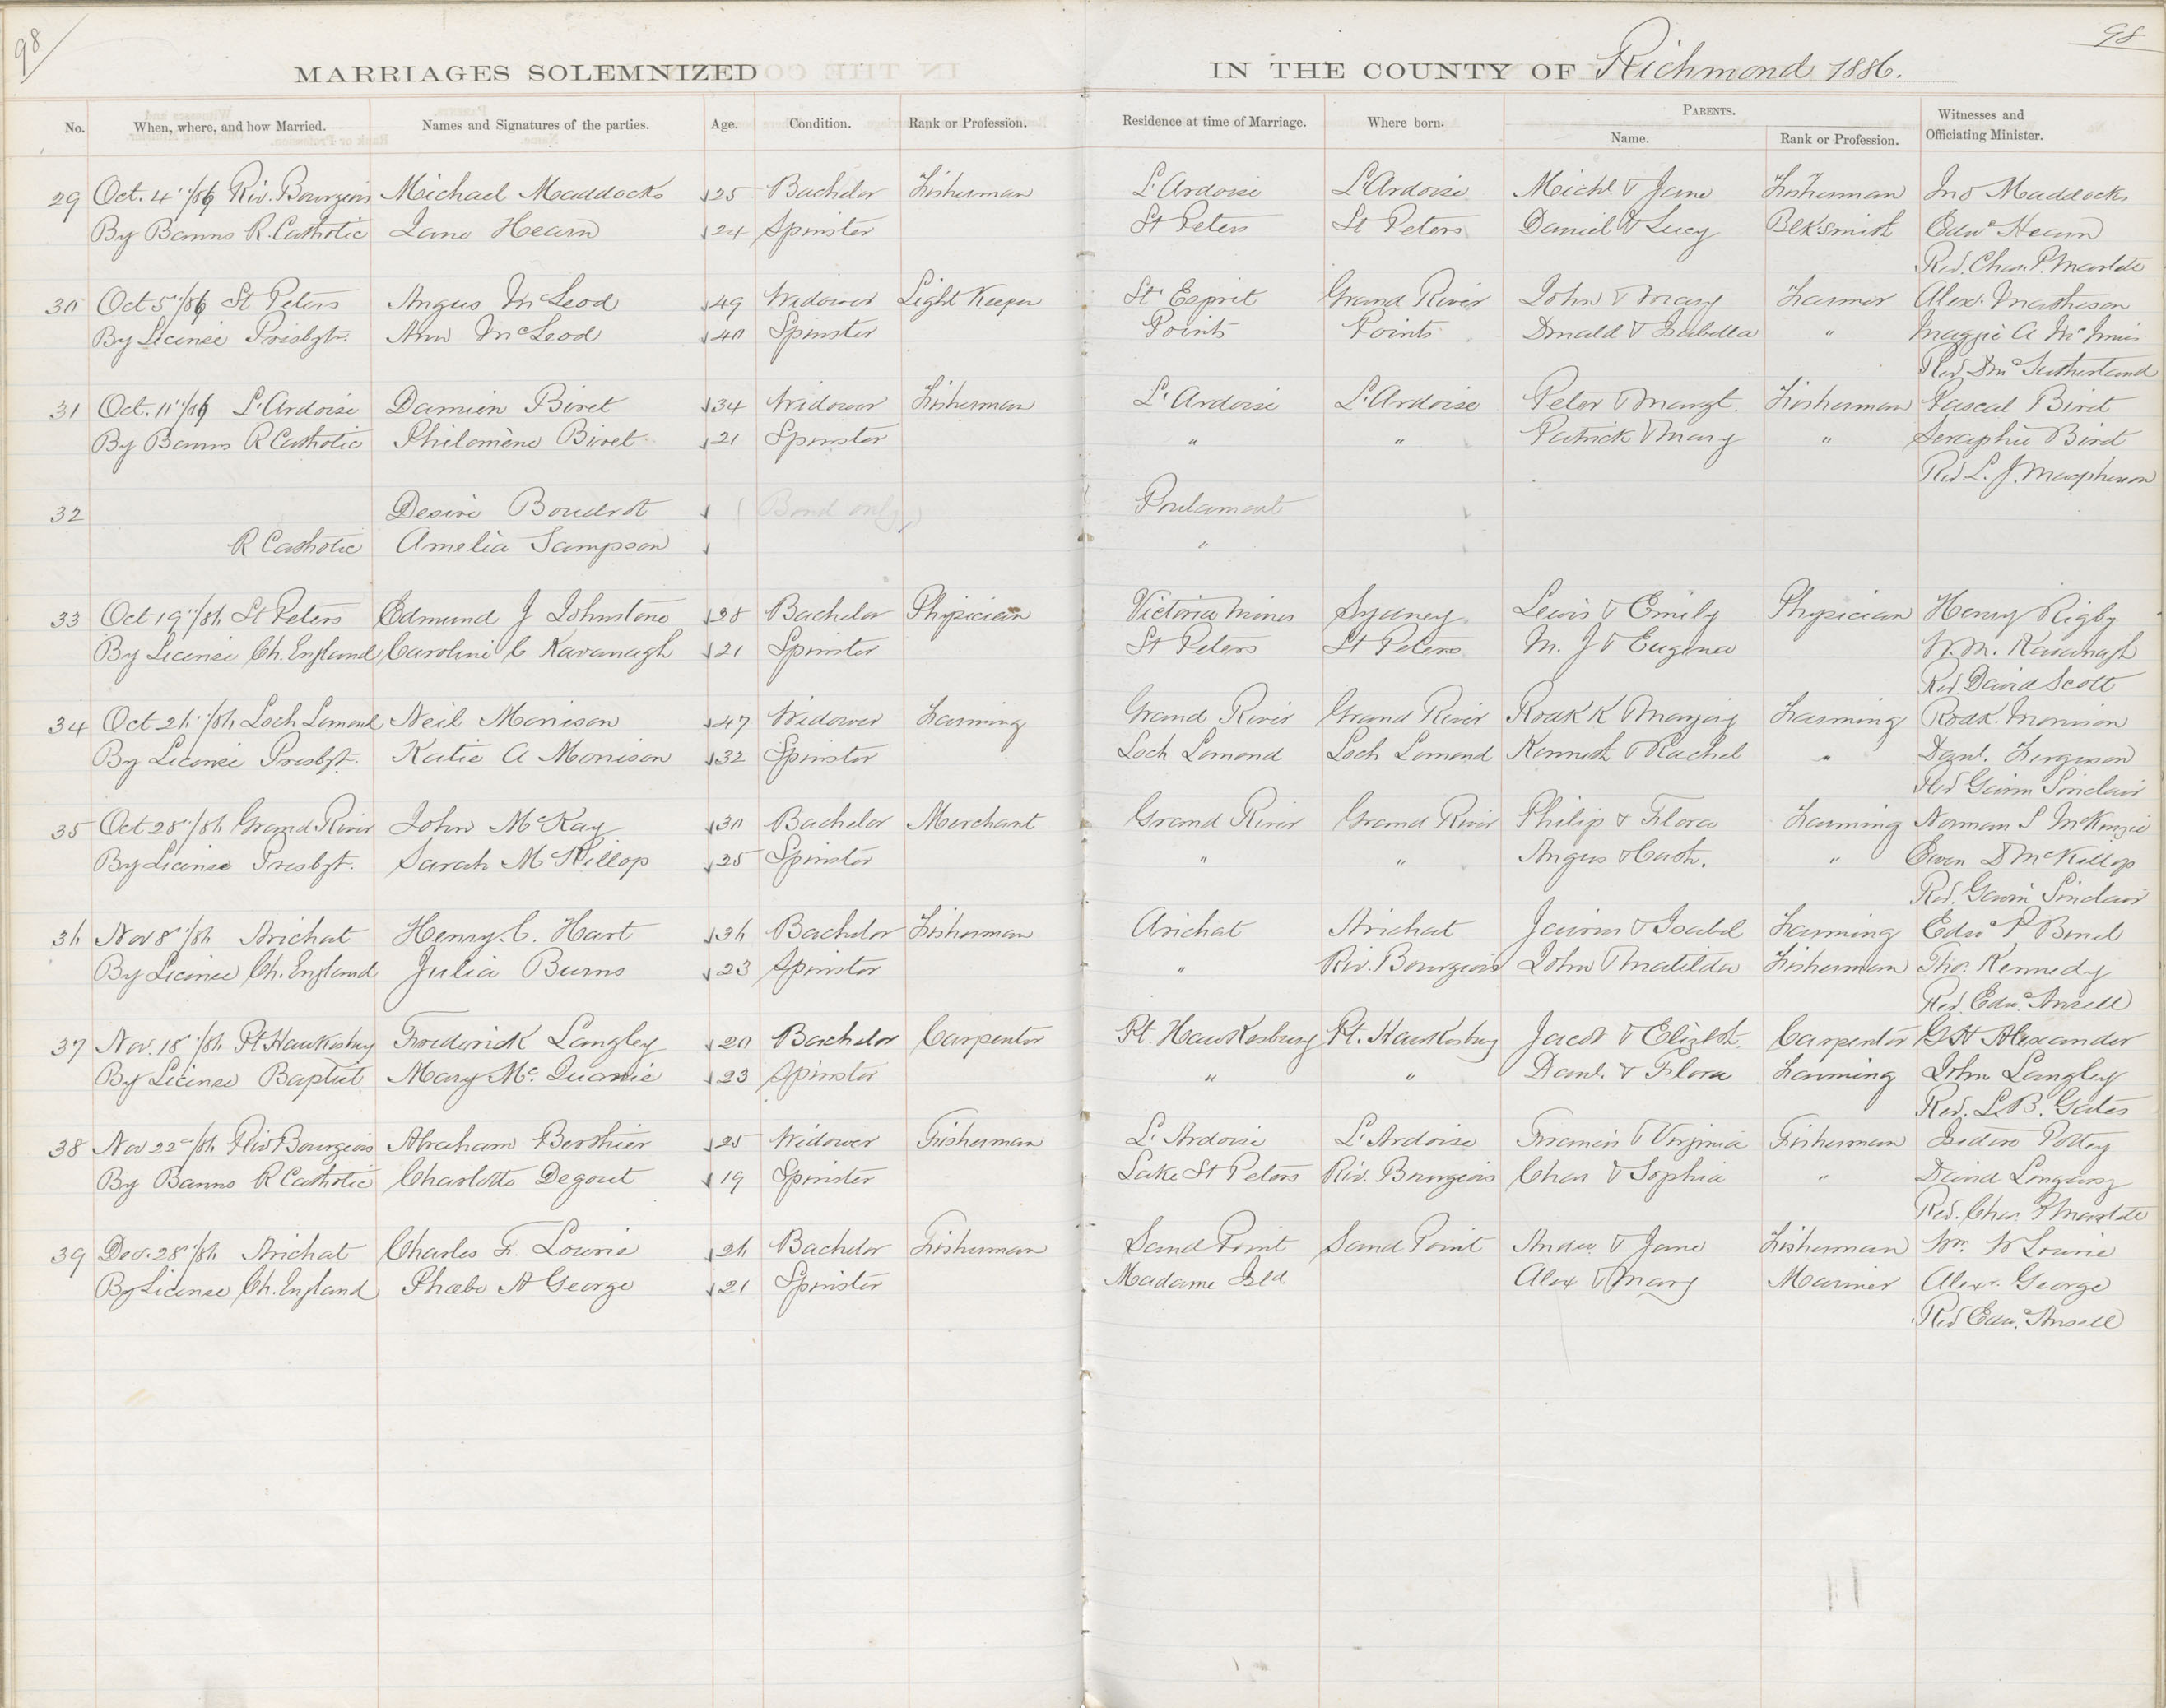 98 98
MARRIAGES SOLEMNIZED IN THE COUNTY OF Richmond 1886.
No. When, where, and how Married. Names and Signatures of the parties. Age. Condition. Rank or Profession. Residence at time of Marriage. Where born. PARENTS. Name. Rank or Profession. Witnesses and Officiating Minister.
29 Oct. 4"/86 Riv. Bourgeois Michael Maddocks 25 Bachelor Fisherman L'Ardoise L'Ardoise Michl & Jane Fisherman Jno Maddocks
By Banns R. Catholic Jane Hearn 24 Spinster St Peters St Peters Daniel & Lucy Blksmith Edwd Hearn
Rev. Chas. P. Martell
30 Oct 5"/86 St Peters Angus McLeod 49 Widower Light Keeper St Esprit Grand River John & Mary Farmer Alex. Matheson
By License Presbyt. Ann McLeod 40 Spinster Points Points Donald & Isabella " Maggie A McInnis
Rev. Sutherland
31 Oct. 11"/86 L'Ardoise Damien Biret 34 Widower Fisherman L'Ardoise L'Ardoise Peter & Margt. Fisherman Pascal Biret
By Banns R Catholic Philomène Biret 21 Spinster " " Patrick & Mary " Seraphie Biret
Rev L. J. Macpherson
32 Desire Boudrot (Bond only) Poulamont
R Catholic Amelia Sampson "
33 Oct 19"/86 St Peters Edmund J Johnstone 28 Bachelor Physician Victoria Mines Sydney Lewis & Emily Physician Henry Rigby
By License Ch. England Caroline C Kavanagh 21 Spinster St Peters St Peters M. J & Eugenea Kavanagh
Rev David Scott
34 Oct 26"/86 Loch Lomond Neil Morrison 47 Widower Farming Grand River Grand River Rodk K & Marjery Farming Rodk. Morrison
By License Presbyt. Katie A Morrison 32 Spinster Loch Lomond Loch Lomond Kenneth & Rachel " Danl. Ferguson
Rev Gavin Sinclair
35 Oct 28"/86 Grand River John McKay 30 Bachelor Merchant Grand River Grand River Philip & Flora Farming Norman S McKenzie
By License Presbyt. Sarah McKillop 35 Spinster " " Angus & Cath. " Ewen D McKillop
Rev. Gavin Sinclair
36 Nov 8"/86 Arichat Henry. C. Hart 36 Bachelor Fisherman Arichat Arichat Jairus & Isabel Farming Edwd P
By License Ch. England Julia Burns 23 Spinster " Riv. Bourgeois John & Matilda Fisherman Thos. Kennedy
Rev. Edwd Ansell
37 Nov. 18"/86 Pt Hawkesbury Frederick Langley 20 Bachelor Carpenter Pt. Hawkesbury Pt. Hawkesbury Jacob & Elizbth. Carpenter G H Alexander
By License Baptist Mary Mc. Quarrie 23 Spinster " " Danl. & Flora Farming John Langley
Rev. L. B. Gates
38 Nov 22d/86 Riv Bourgeois Abraham Berthier 25 Widower Fisherman L'Ardoise L'Ardoise Francis & Virginia Fisherman Isidore Pottey
By Banns R Catholic Charlotte Degout 19 Spinster Lake St Peters Riv. Bourgeois Chas & Sophia " David
Rev. Chas. P Martell
39 Dec. 28"/86 Arichat Charles F. Lowrie 26 Bachelor Fisherman Sand Point Sand Point Andw. & Jane Fisherman Wm. W Lowrie
By License Ch. England Phœbe A George 21 Spinster Madame Isld. Alex & Mary Mariner Alexr. George
Rev Edwd. Ansell